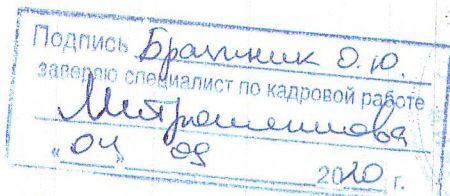 Подпись Братчик О.Ю.
заверяю специалист по кадровой работе
Митрошенкова
«04» 09 2020 г.